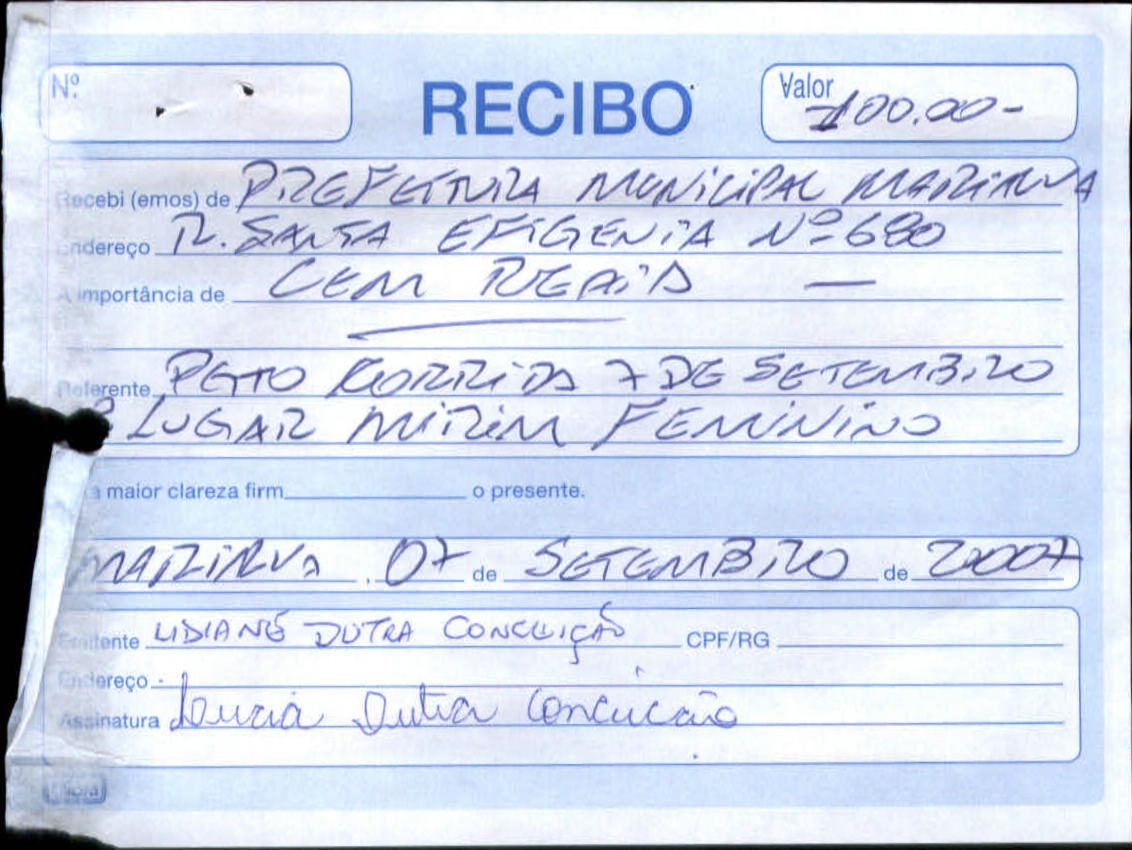 Nº
RECIBO
Valor
100.00-
Recebi (emos) de PREFEITURA MUNICIPAL MARIALVA
Endereço R. SANTA EFIGENIA Nº 680
A importância de CEM REAIS —
Referente CORRIDA 7 DE SETEMBRO
LUGAR MIRIM FEMININO
a maior clareza firm o presente.
MARIALVA, 07 de SETEMBRO de 2007
Emitente LIDIANE DUTRA CONCEIÇÃO CPF/RG
Endereço
Assinatura Dutra Conceicão